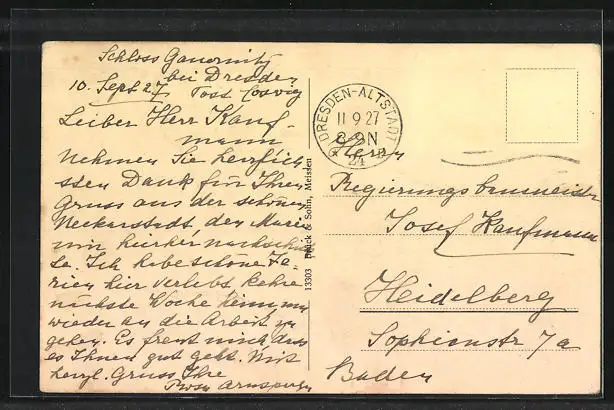 Schloss Gauernitz
bei Dresden
10. Sept 27. Post Coswig
Lieber Herr Kauf-
mann
Nehmen Sie herzlich-
sten Dank für Ihren
Gruss aus der schönen
Neckarstadt, den Marie
mir hierher nachschick-
te. Ich habe schöne Fe-
rien hier verlebt, kehre
nächste Woche heim, um
wieder an die Arbeit zu
gehen. Es freut mich dass
es Ihnen gut geht. Mit
herzl. Gruss Ihre
Rosa
13303 & Sohn, Meissen
DRESDEN-ALTSTADT
11 9 27
8-9N
24
Herrn
Regierungsbaumeister
Josef Kaufmann
Heidelberg
Sophienstr 7a
Baden